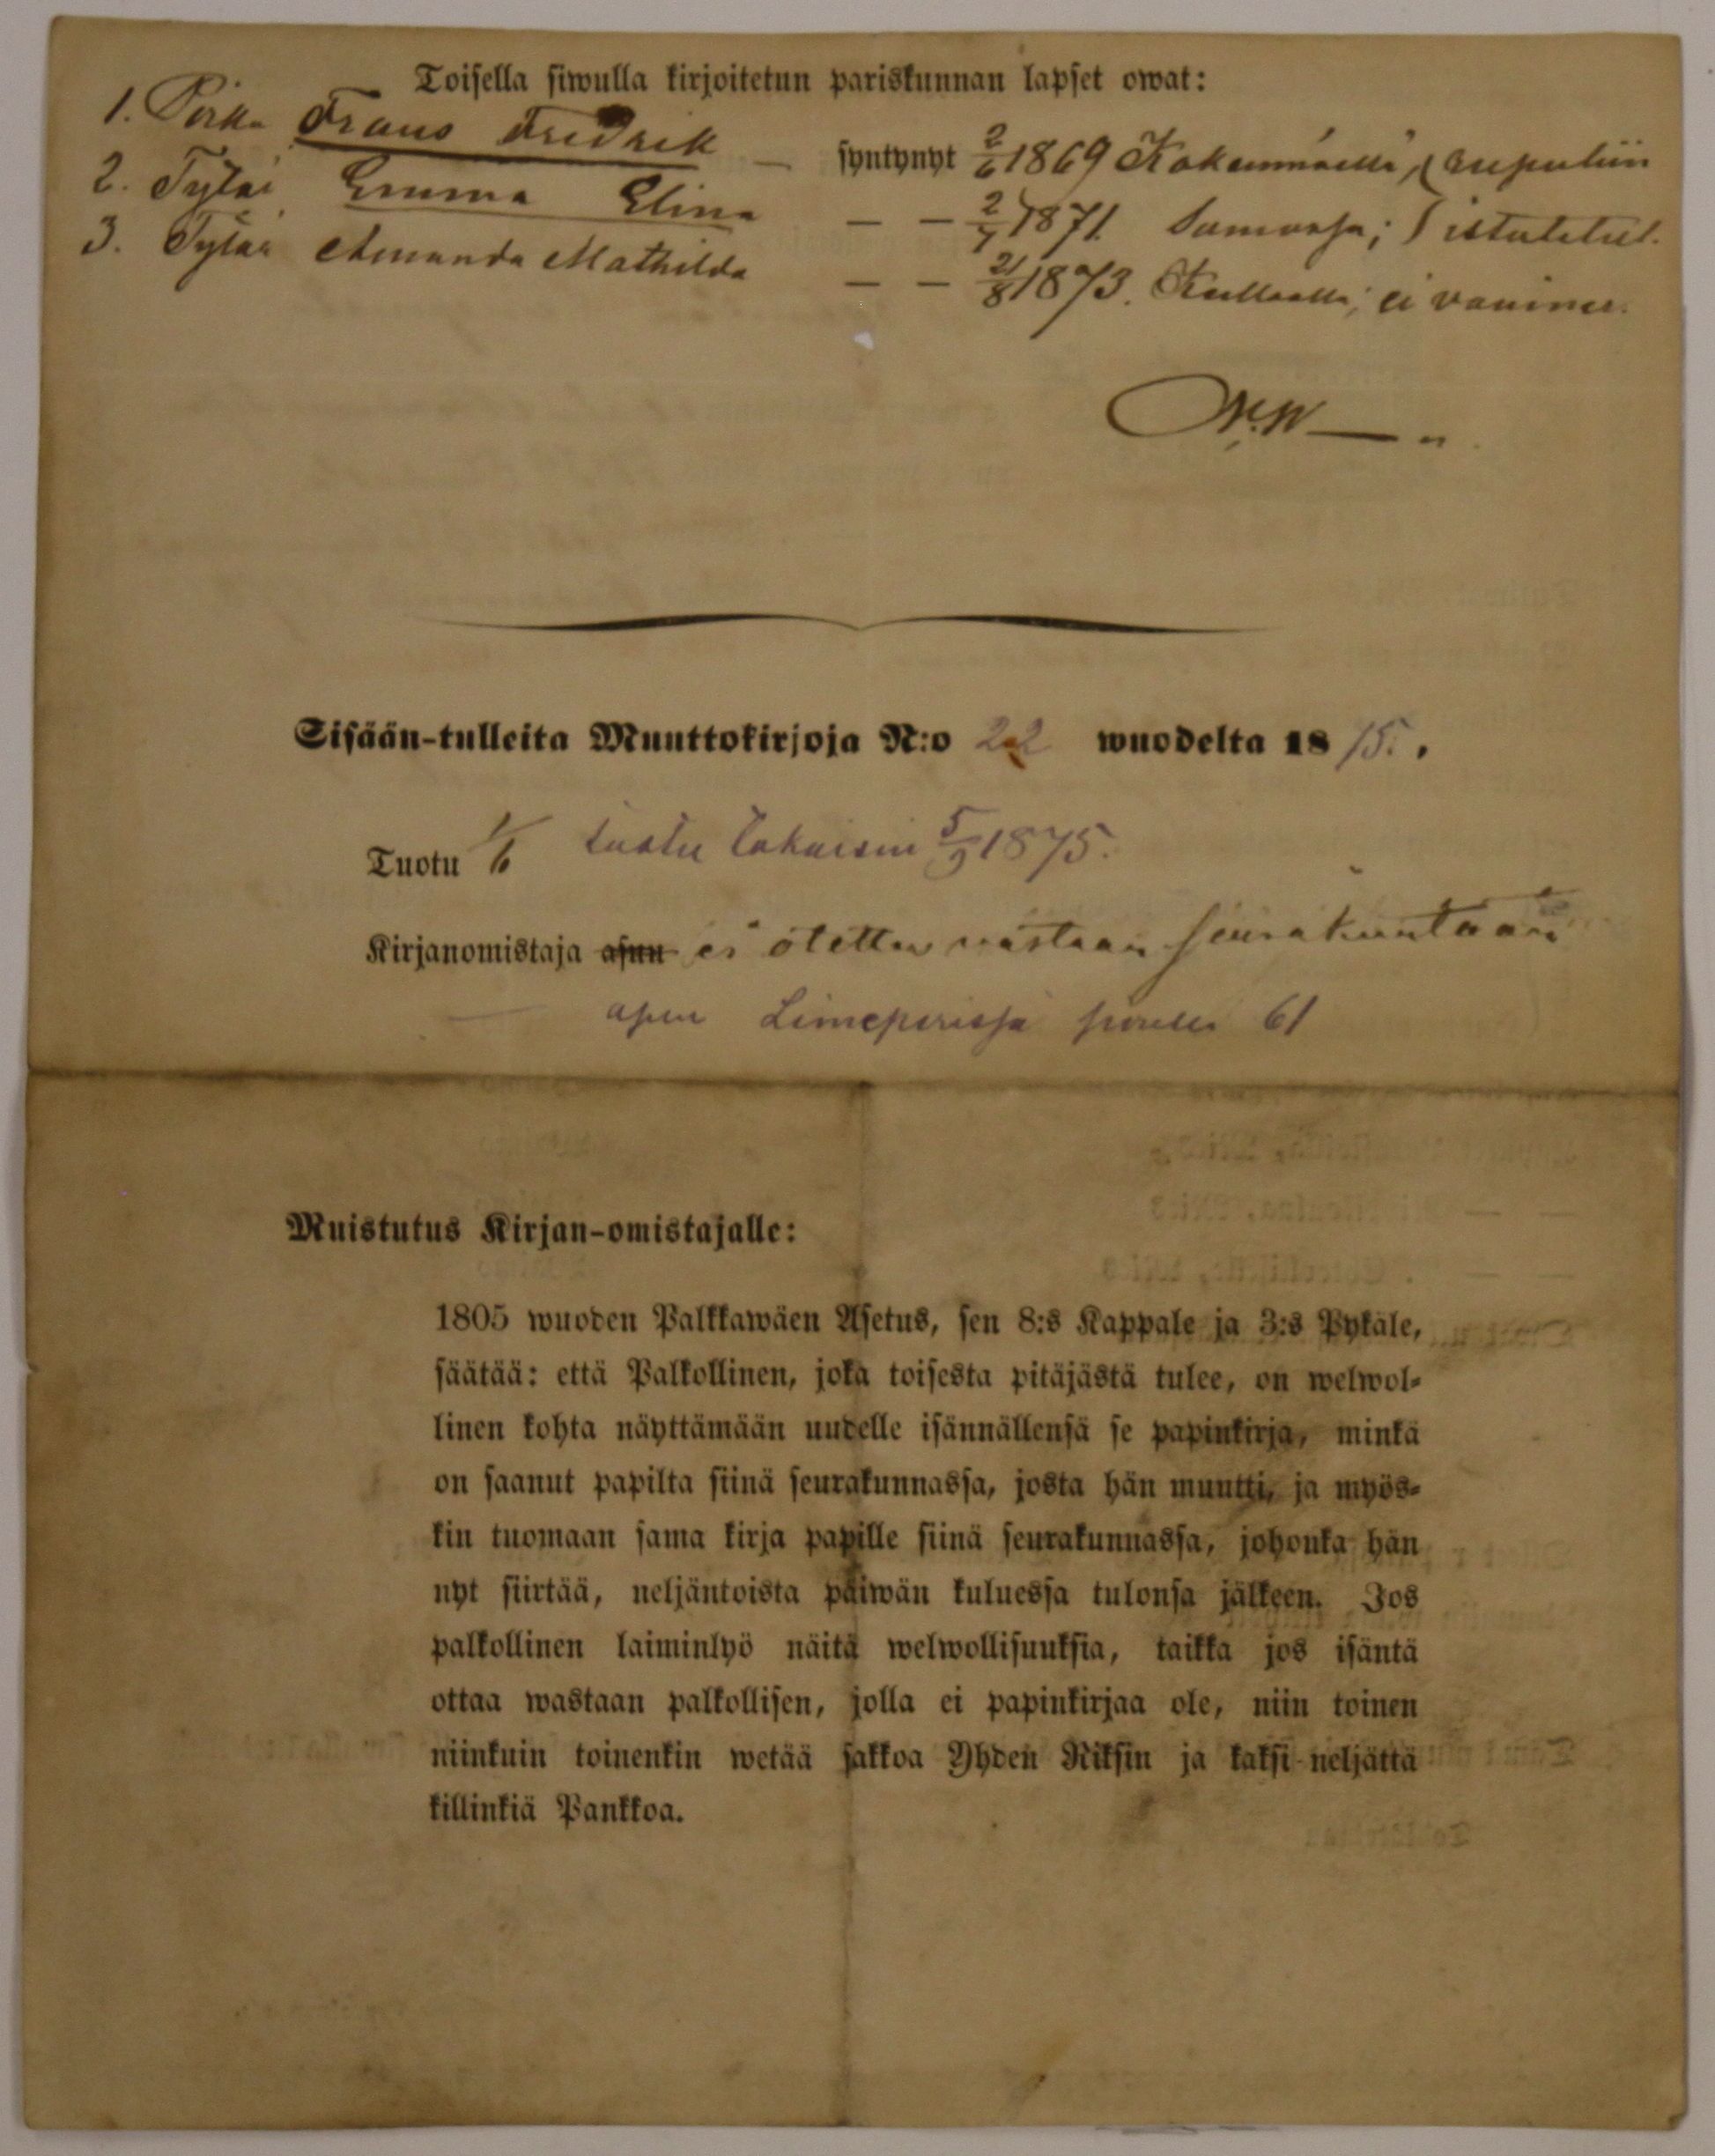 Toisella siwulla kirjoitetun pariskunnan lapset owat:
1. Poika Frans Fredrik — syntynyt 2/6 1869 Kokemäellä, rupuliin
2. Tytär Emma Elina — — 2/7 1871. Samassa; istutetut.
3. Tytär Amanda Mathilda — — 21/8 1873. Kullaalla; ei
Sisään-tulleita Muuttokirjoja N:o 22 wuodelta 1875.
Tuotu 1/6 tuotu takaisin 5/9 1875.
Kirjanomistaja asuu ei otettu vastaan seurakuntaan
asuu 61
Muistutus Kirjan-omistajalle:
1805 wuoden Palkkawäen Asetus, sen 8:s Kappale ja 3:s Pykäle,
säätää: että Palkollinen, joka toisesta pitäjästä tulee, on welwol-
linen kohta näyttämään uudelle isännällensä se papinkirja, minkä
on saanut papilta siinä seurakunnassa, josta hän muutti, ja myös-
kin tuomaan sama kirja papille siinä seurakunnassa, johonka hän
nyt siirtää, neljäntoista päiwän kuluessa tulonsa jälkeen. Jos
palkollinen laiminlyö näitä welwollisuuksia, taikka jos isäntä
ottaa wastaan palkollisen, jolla ei papinkirjaa ole, niin toinen
niinkuin toinenkin wetää sakkoa Yhden Riksin ja kaksi neljättä
killinkiä Pankkoa.